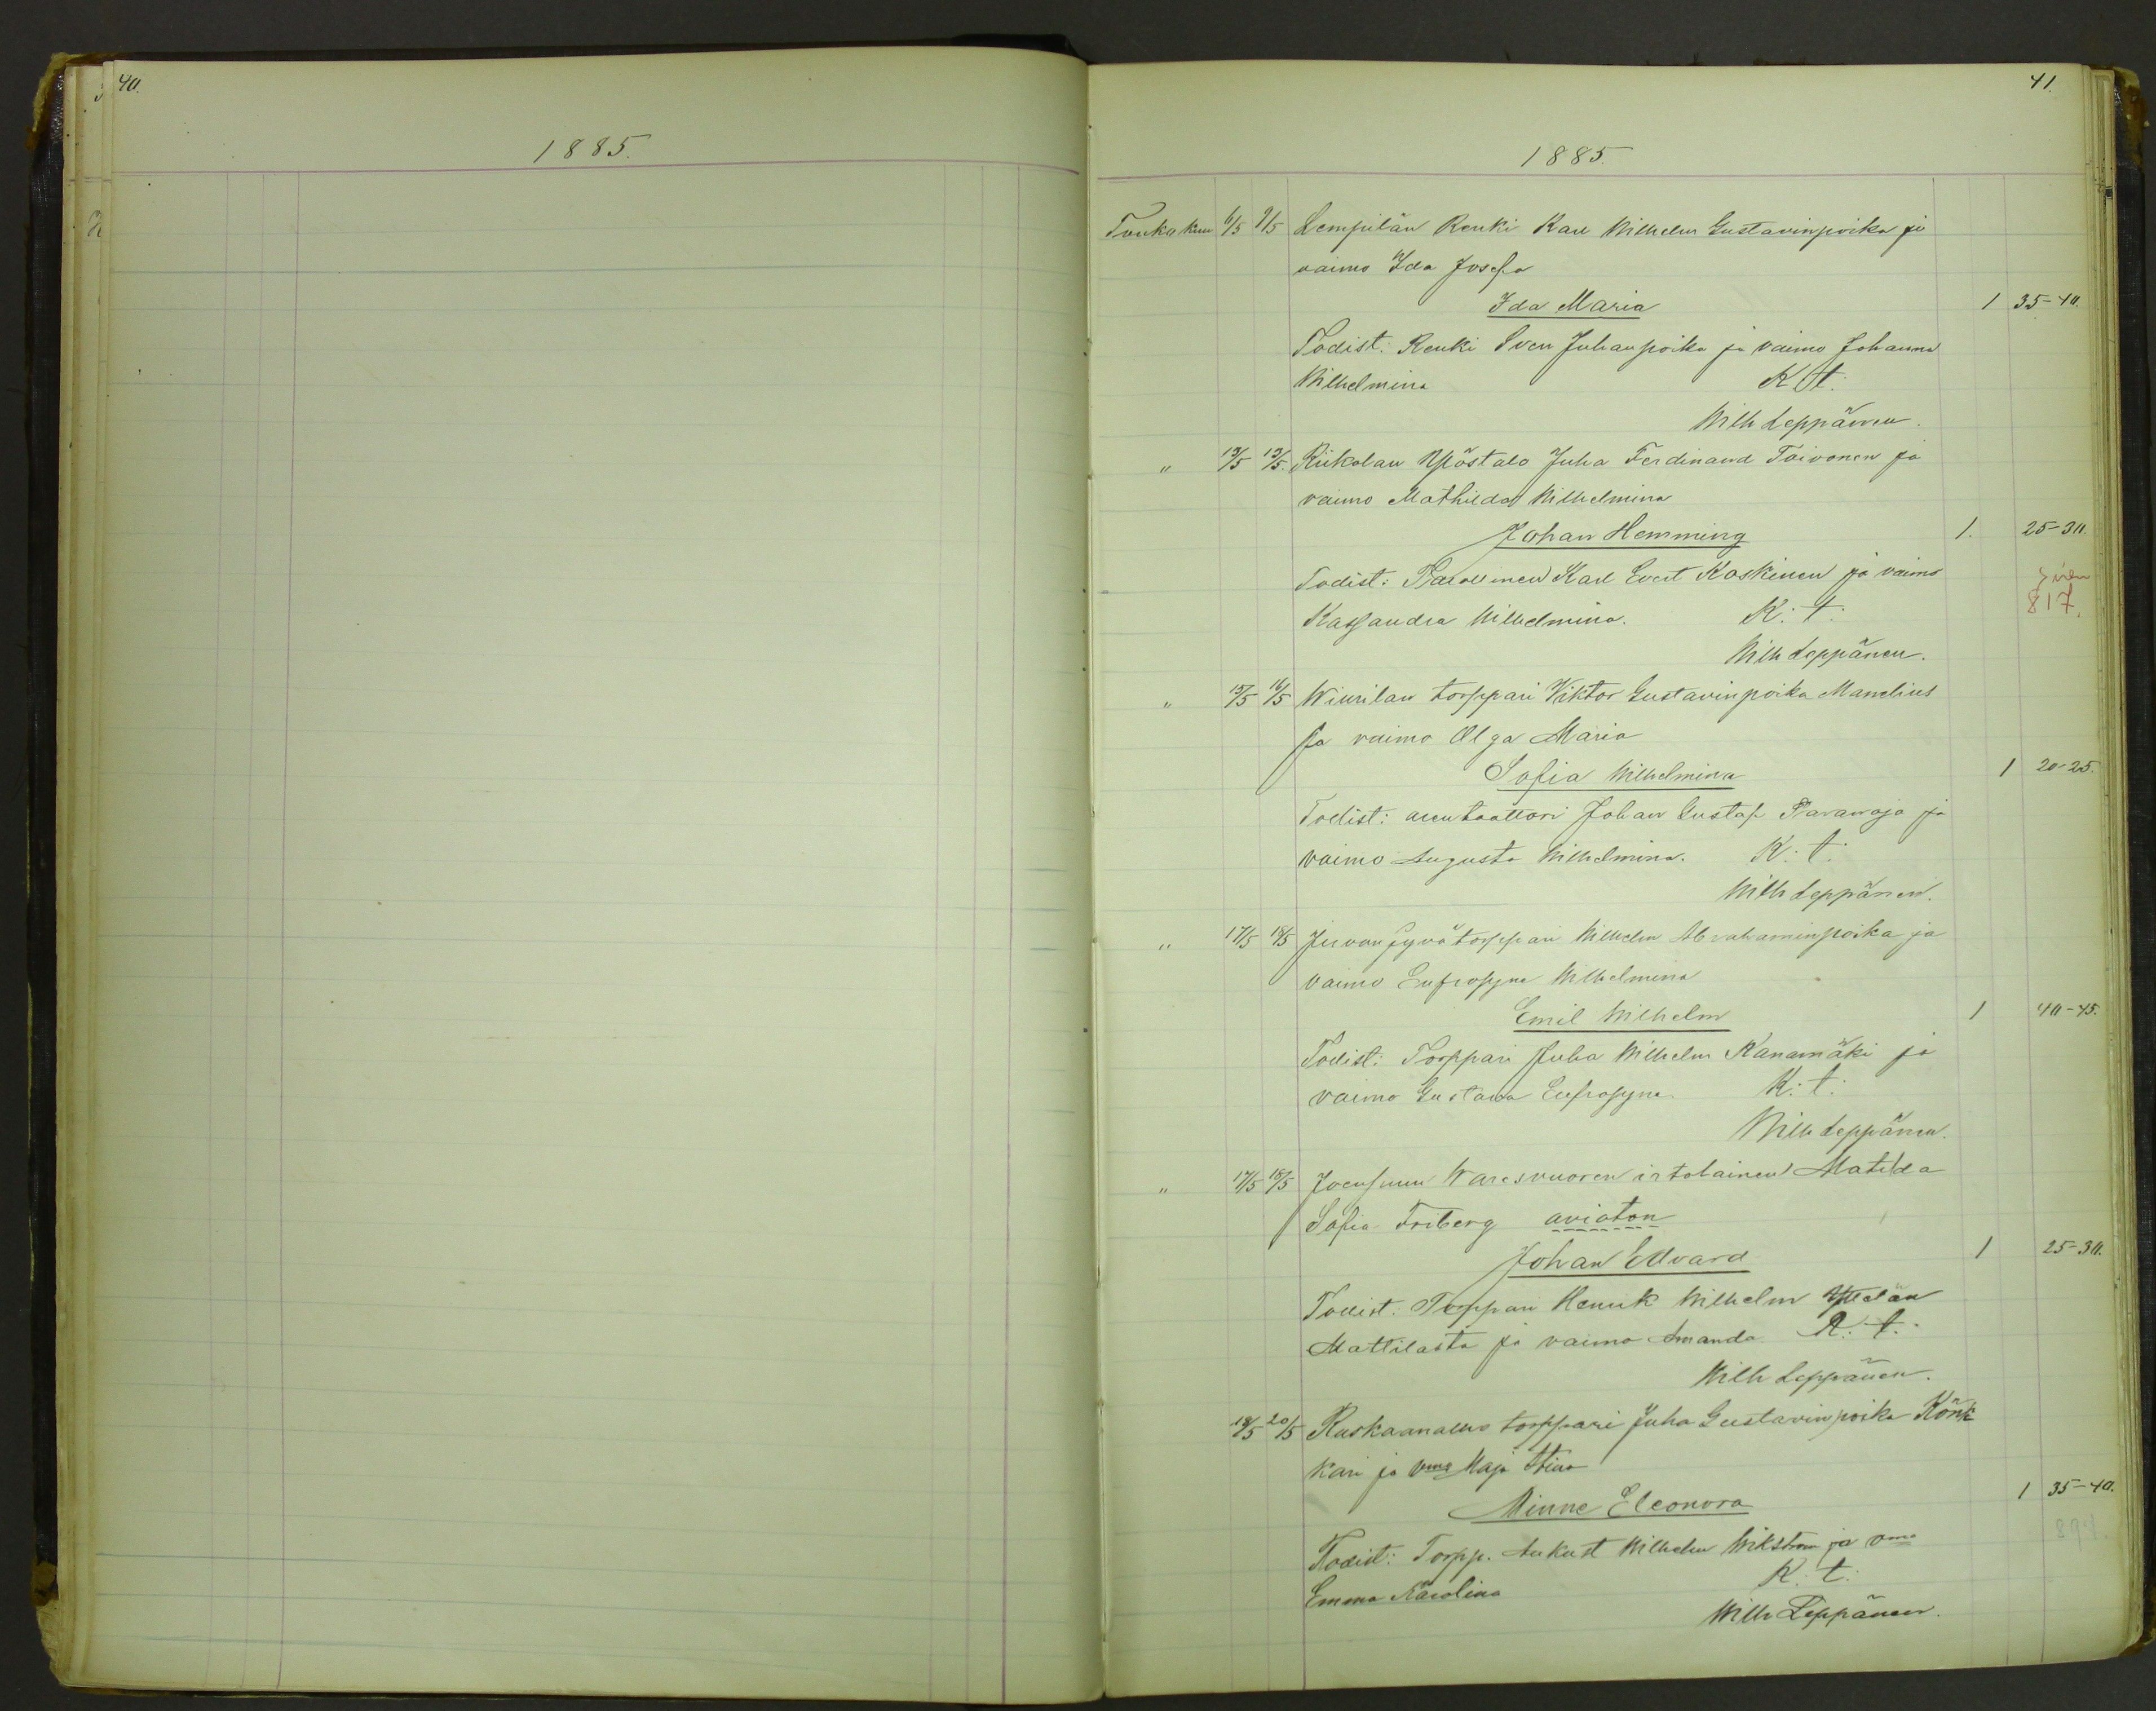 40.
1885.
41.
1885.
Toukokuu 6/5 9/5 Lempilän Renki Karl Wilhelm Gustavinpoika ja
vaimo Ida Josefa
Ida Maria 1 35-40.
Todist: Renki Sven Juhanpoika ja vaimo Johanna
Wilhelmina K. t.
Wilh Leppänen.
" 13/5 13/5. Riikolan Ylöstalo Juha Ferdinand Toivonen ja
vaimo Mathilda Wilhelmina
Johan Hemming 1. 25-30.
Todist: Karl Evert Koskinen ja vaimo
Kassandra Wilhelmina. K: t:
817.
Wilh Leppänen.
" 15/5 16/5 Wiurilan torppari Viktor Gustavinpoika Mandlius
ja vaimo Olga Maria
Sofia Wilhelmina 1 20-25.
Todist: arentaattori Johan Gustaf ja
vaimo Augusta Wilhelmina. K: t:
Wilh Leppänen.
" 17/5 18/5 torppari Wilhelm Abrahaminpoika ja
vaimo Eufrosyne Wilhelmina
Emil Wilhelm 1 40-45.
Todist: Torppari Juha Wilhelm Kanamäki ja
vaimo Gustava Eufrosyna K: t:
Wilh Leppänen.
" 17/5 18/5 Joensuun Waresvuoren irtolainen Matilda
Sofia Friberg avioton
Johan Edvard 1 25-30.
Todist. Torppari Henrik Wilhelm
Mattilasta ja vaimo Amanda K: t:
Wilh Leppänen.
18/5 20/5 torppari Juha Gustavinpoika Könk
kari ja vmo Maja Stina
Minne Eleonora 1 35-40.
Todist: Torpp. Aukust Wilhelm Wikström ja vmo
Emma Karolina K: t:
Wilh Leppänen.